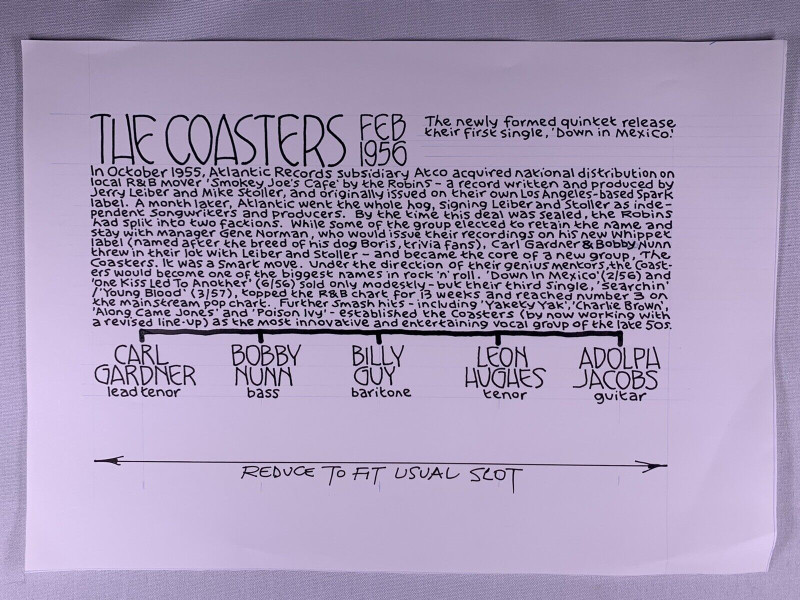 THE COASTERS FEB 1956
The newly formed quintet release
their first single, 'Down in Mexico.'
In October 1955, Atlantic Records subsidiary Atco acquired national distribution on
local R&B mover 'Smokey Joe's Cafe' by the Robins – a record written and produced by
Jerry Leiber and Mike Stoller, and originally issued on their own Los Angeles-based Spark
label. A month later, Atlantic went the whole hog, signing Leiber and Stoller as inde-
pendent songwriters and producers. By the time this deal was sealed, the Robins
had split into two factions. While some of the group elected to retain the name and
stay with manager Gene Norman, who would issue their recordings on his new Whippet
label (named after the breed of his dog Boris, trivia fans), Carl Gardner & Bobby Nunn
threw in their lot with Leiber and Stoller – and became the core of a new group, The
Coasters. It was a smart move. Under the direction of their genius mentors, the Coast-
ers would become one of the biggest names in rock'n'roll. 'Down In Mexico' (2/56) and
'One Kiss Led To Another' (6/56) sold only modestly – but their third single, 'Searchin'
/'Young Blood' (3/57), topped the R&B chart for 13 weeks and reached number 3 on
the mainstream pop chart. Further smash hits – including 'Yakety Yak', 'Charlie Brown',
'Along Came Jones' and 'Poison Ivy' – established the Coasters (by now working with
a revised line-up) as the most innovative and entertaining vocal group of the late 50s.
CARL GARDNER lead tenor
BOBBY NUNN bass
BILLY GUY baritone
LEON HUGHES tenor
ADOLPH JACOBS guitar
REDUCE TO FIT USUAL SLOT